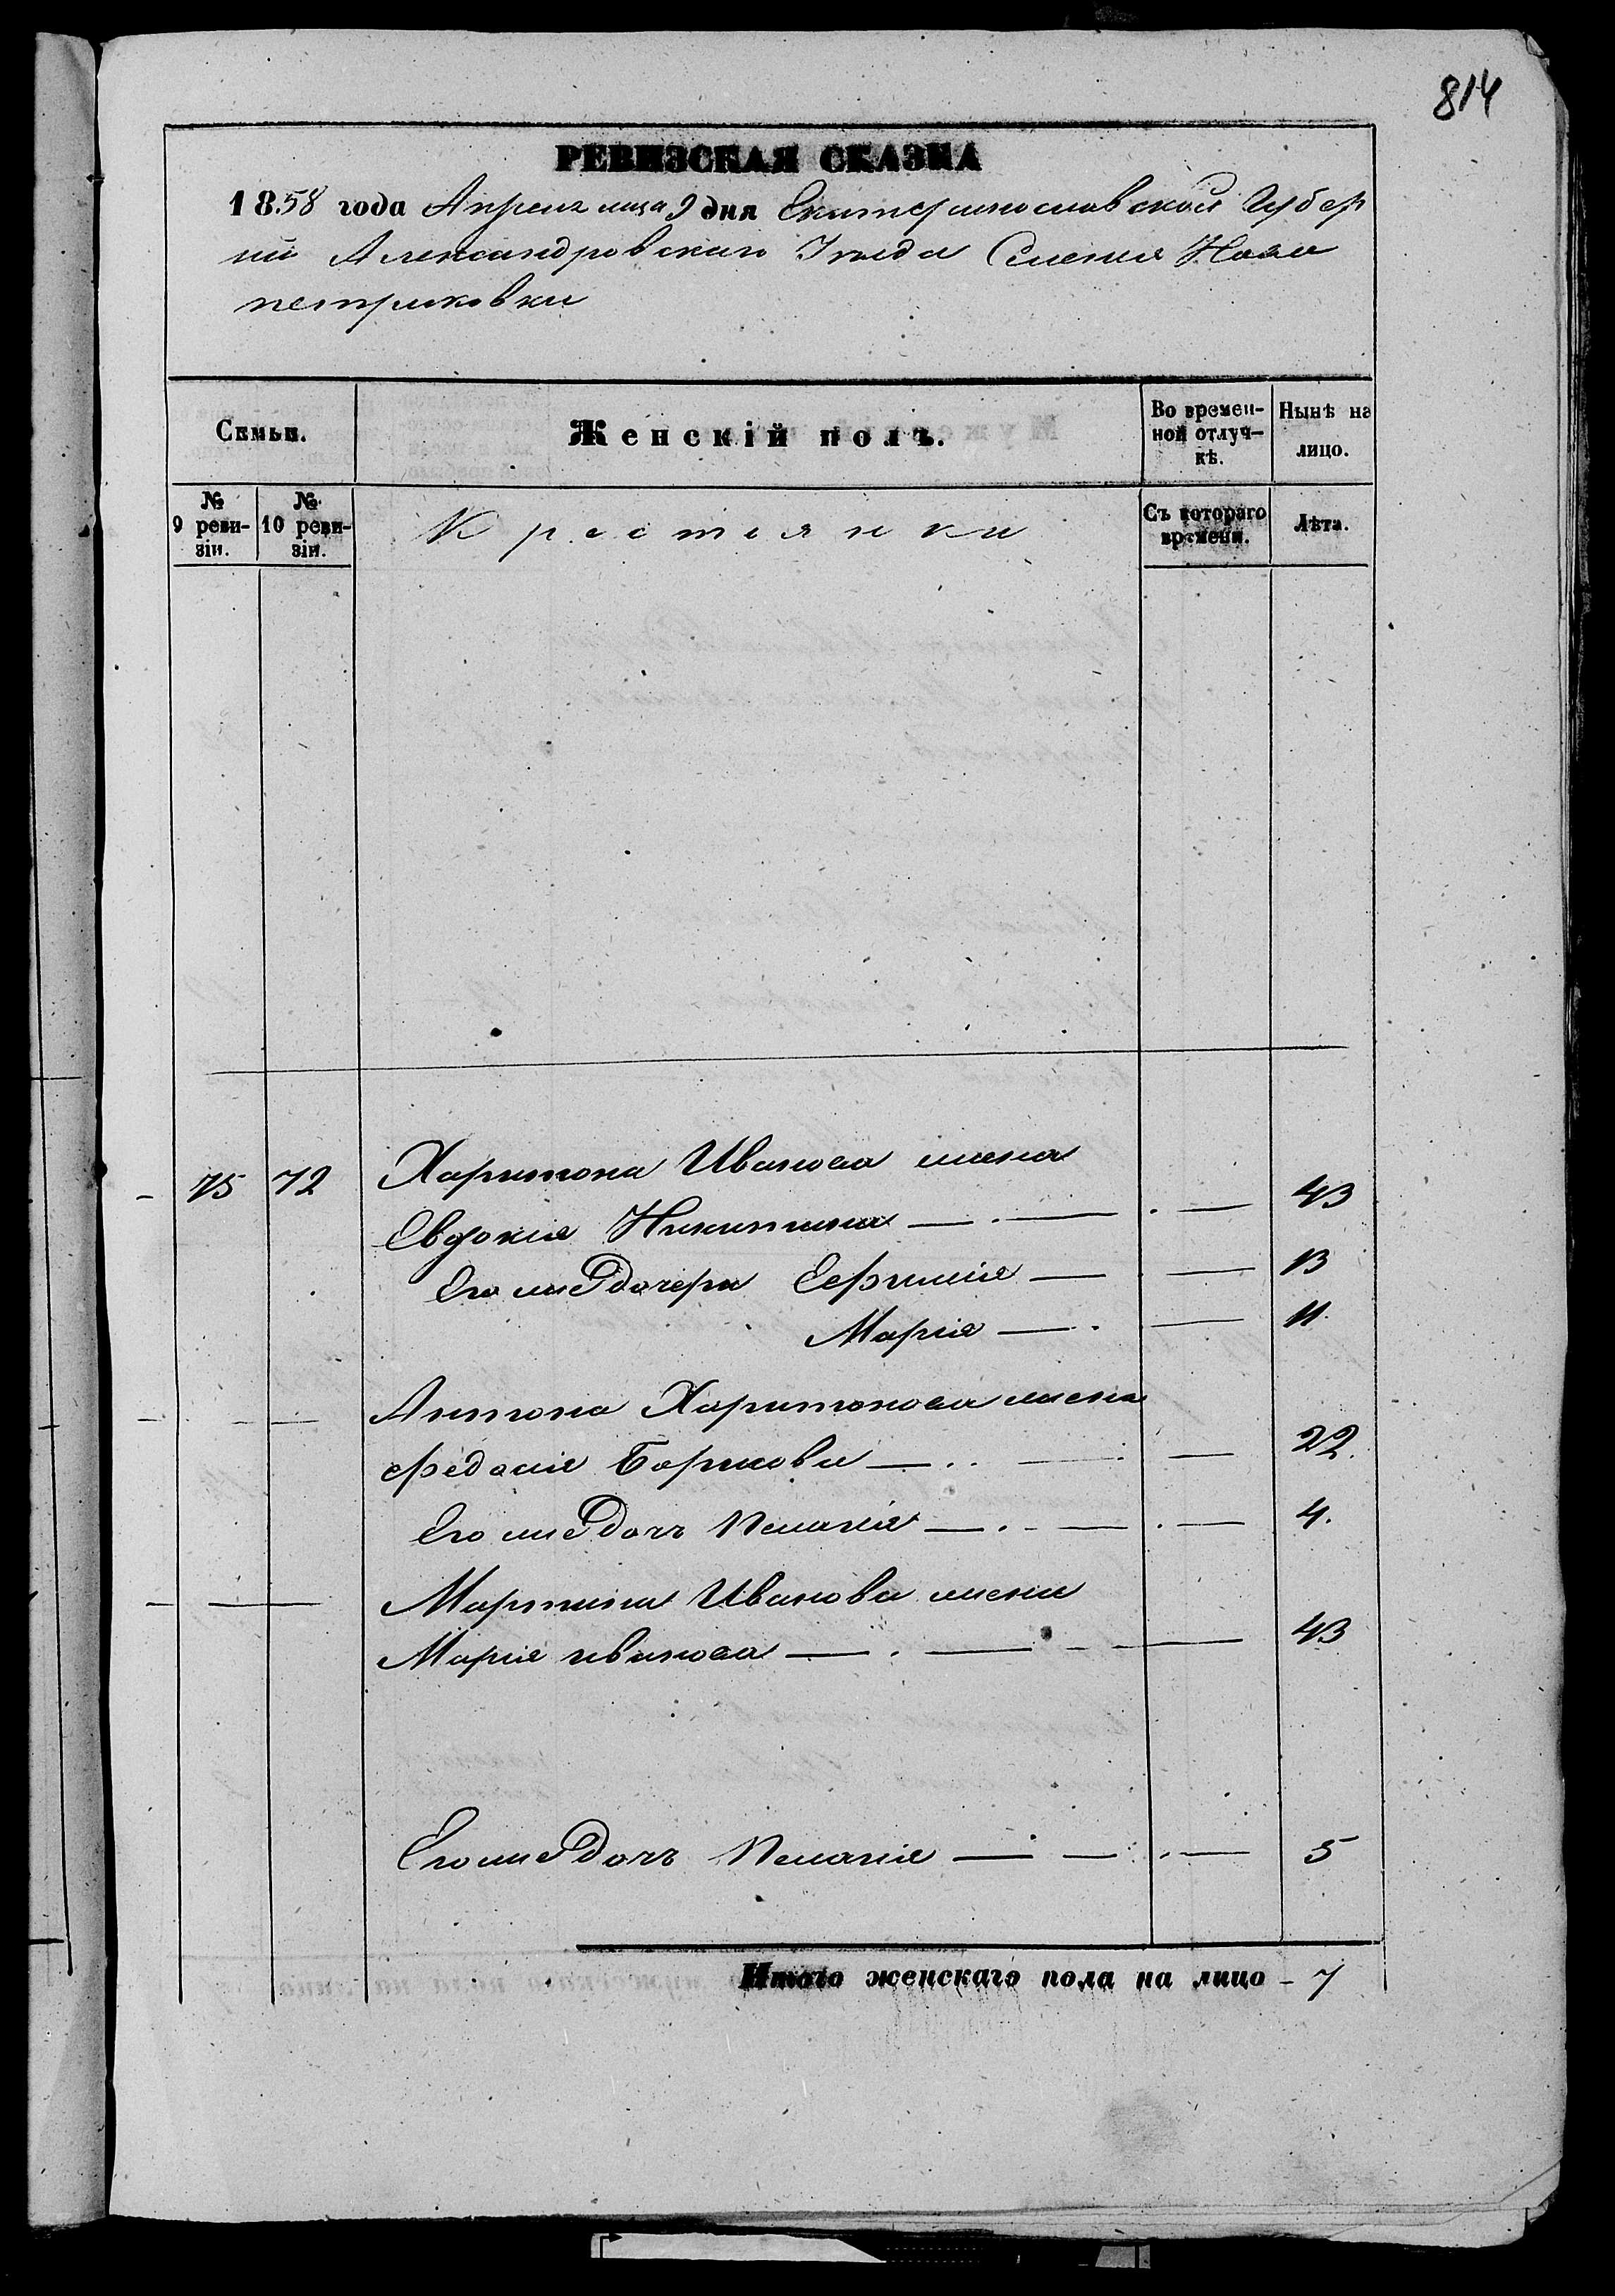 814
РЕВИЗСКАЯ СКАЗКА
1858 года Апреля мца 9 дня Екатеринославской Губер
нии Александровскаго Уезда Селения Ново
петриковки
Семьи.
Женскій полъ.
Во времен-
ной отлуч-
кѣ.
Нынѣ на
лицо.
№
9 реви-
зіи.
№
10 реви-
зіи.
Крестянки
Съ котораго
времени.
Лѣта.
75 72 Харитона Иванова жена
Евдокия Никитина 43
Его же дочери Ефимия 13
Мария 11.
Антона Харитонова жена
Федосия Борисова 22.
Его же дочь Пелагия 4.
Мартина Иванова жена
Мария иванова 43
Его же дочь Пелагия 5
Итого женскаго пола на лицо - 7